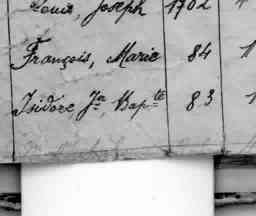 Louis, Joseph 1702
François, Marie 84
Isidore Jn, Bapte 83